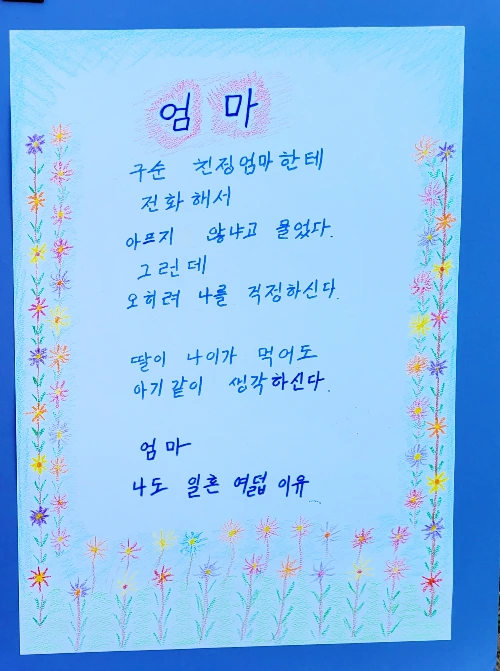 엄마
구순 친정엄마한테
전화해서
아프지 않냐고 물었다.
그런데
오히려 나를 걱정하신다.
딸이 나이가 먹어도
아기같이 생각하신다.
엄마
나도 일흔 여덟 이유